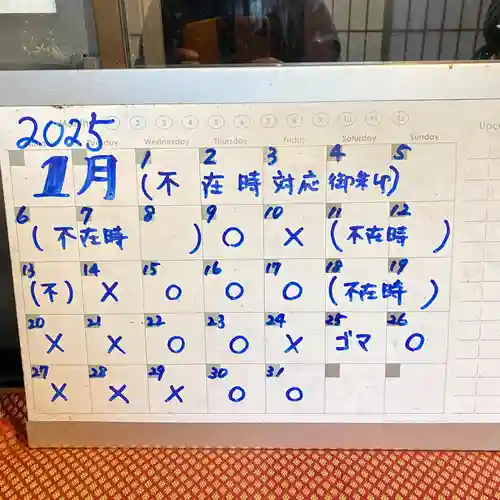 2025
1月
Wednesday Thursday Friday Saturday Sunday
1 2 3 4 5
(不在時対応御朱印)
6 7 8 9 10 11 12
(不在時) ○ × (不在時)
13 14 15 16 17 18 19
(不) × ○ ○ ○ (不在時)
20 21 22 23 24 25 26
× × ○ ○ × ゴマ ○
27 28 29 30 31
× × × ○ ○